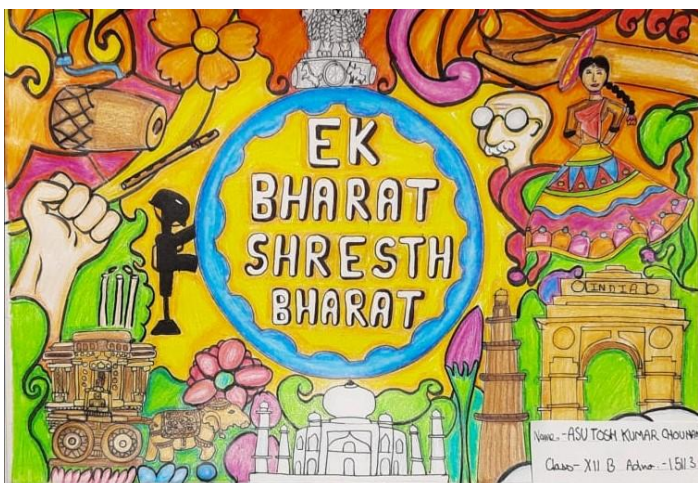 EK
BHARAT
SHRESTH
BHARAT
INDIA
Name:-ASUTOSH KUMAR
Class- XII B Admno:-15113